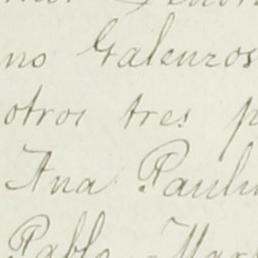 no Galenzos
otros tres p
Ana Paul
Pablo Mar